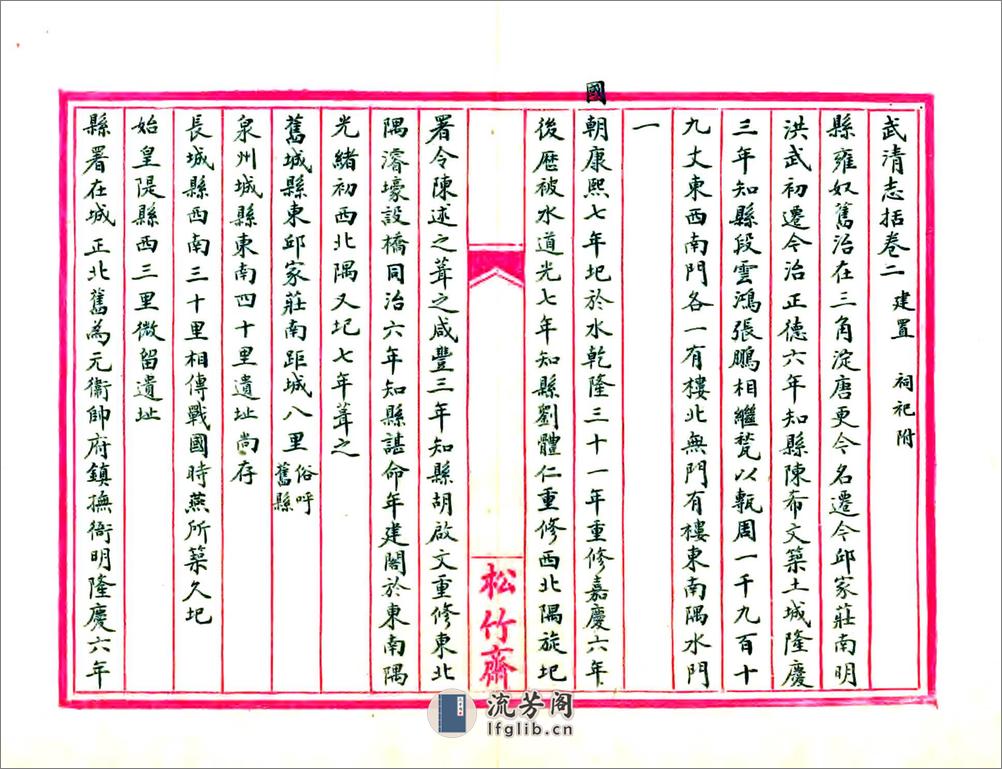 武清志括卷二　建置　祠祀附
縣雍奴舊治在三角淀唐更今名遷今邱家莊南明
洪武初遷今治正德六年知縣陳希文築土城隆慶
三年知縣段雲鴻張鵬相繼甃以甎周一千九百十
九丈東西南門各一有樓北無門有樓東南隅水門
一
國朝康熙七年圯於水乾隆三十一年重修嘉慶六年
後歷被水道光七年知縣劉體仁重修西北隅旋圯
署令陳述之葺之咸豐三年知縣胡啟文重修東北
隅濬壕設橋同治六年知縣諶命年建閣於東南隅
光緒初西北隅又圯七年葺之
舊城縣東邱家莊南距城八里俗呼
舊縣
泉州城縣東南四十里遺址尚存
長城縣西南三十里相傳戰國時燕所築久圯
始皇隄縣西三里微留遺址
縣署在城正北舊為元衞帥府鎮撫衙明隆慶六年
松竹齋
流芳阁
lfglib.cn